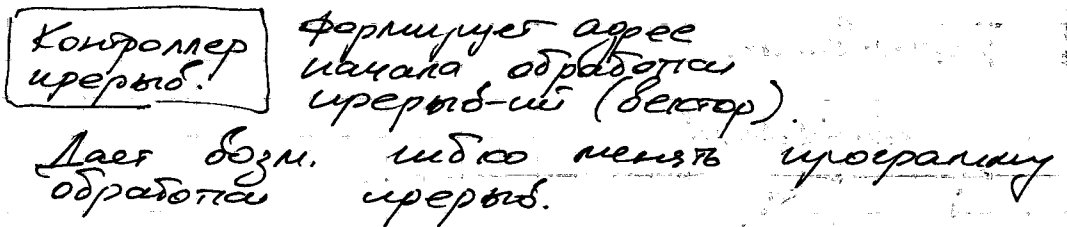 Контроллер прерыв.
формирует адрес
начала обработки
прерыв-ий (вектор).
Дает возм. гибко менять программу
обработки прерыв.